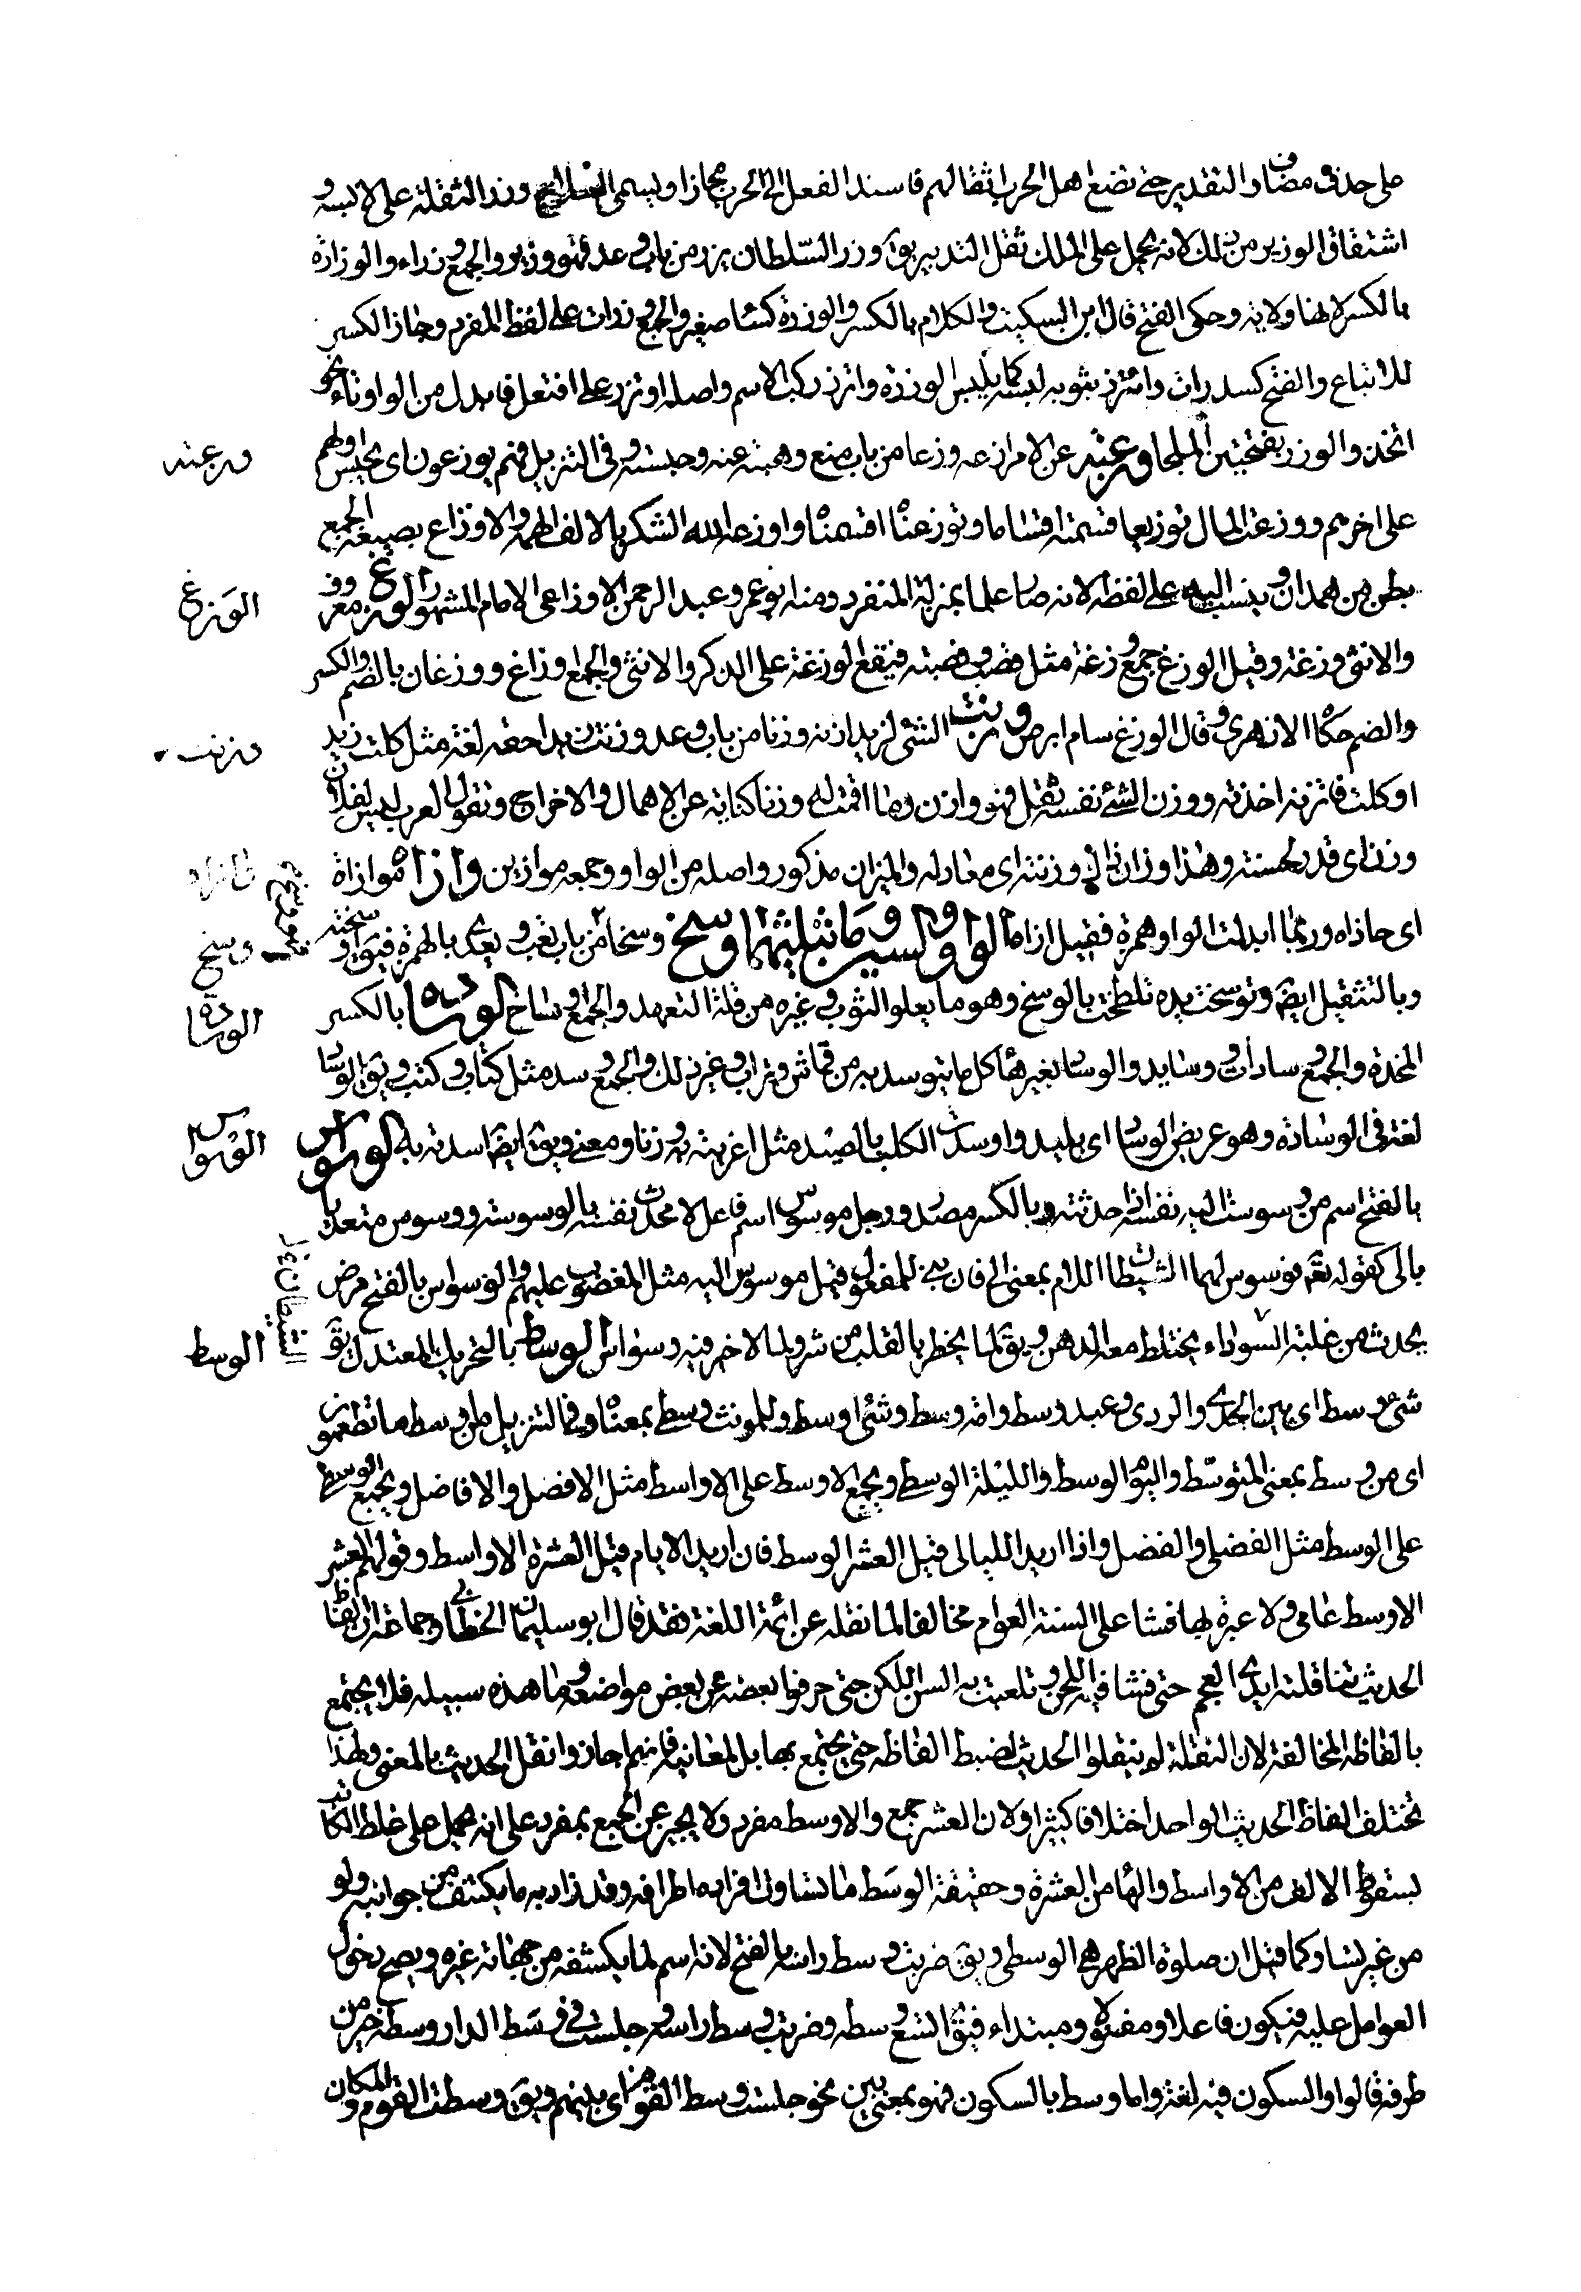 على حذف مضاف والتقدير حتى تضع اهل الحرب اثقالهم فاسند الفعل الى الحرب مجازا ويسمى السلاح وزرا لثقله على لابسه و
اشتقاق الوزير من ذلك لانه يحمل على الملك ثقل التدبير يق وزر السلطان يزر من باب وعد فهو وزير والجمع وزراء والوزارة
بالكسر لانها ولاية وحكى الفتح قال ابن السكيت والكلام بالكسر والوزرة كساء صغير والجمع وزرات على لفظ المفرد وجاز الكسر
للاتباع والفتح كسدرات واتزر بثوبه لبسه كما يلبس الوزرة واتزر ركب الاثم واصله اوتزر على افتعل فابدل من الواو تاء نحو
اتخذ والوزر بفتحتين الملجا وزعته عن الامر ازعه وزعا من باب منع وهب منعته عنه وحبسته وفى التنزيل فهم يوزعون اى يحبس اولهم
على اخرهم ووزعت المال توزيعا قسمته اقساما وتوزعناه اقتسمناه واوزعه الله الشكر بالالف الهمه والاوزاع بصيغة الجمع
بطن من همدان وينسب اليه على لفظه لانه صار علما بمنزلة المفرد ومنه ابو عمرو عبد الرحمن الاوزاعى الامام المشهور الوزغ معروف
والانثى وزغة وقيل الوزغ جمع وزغة مثل قصب وقصبة فيقع الوزغة على الذكر والانثى والجمع اوزاغ ووزغان بالضم والكسر
والضم حكاه الازهرى وقال الوزغ سام ابرص وزنت الشئ لزيد ازنه وزنا من باب وعد ووزنت زيدا حقه لغة مثل كلت زيد
او كلت فاتزنه اخذته ووزن الشئ نفسه ثقل فهو وازن وما اقمت له وزنا كناية عن الاهمال والاخراج وتقول العرب ليس لفلان
وزن اى قدر لخسته وهذا وزان ذلك وزنته اى معادله والميزان مذكور واصله من الواو وجمعه موازين وازاه موازاة
اى حاذاه وربما ابدلت الواو همزة فقيل ازاه الواو والسين وما يثلثهما وسخ وسخا من باب تعب ويعدى بالهمزة فيق اوسخته
وبالتثقيل ايضا وتوسخت يده تلطخت بالوسخ وهو ما يعلو الثوب وغيره من قلة التعهد والجمع اوساخ الوسادة بالكسر
المخدة والجمع وسادات ووسايد والوساد بغير هاء كل ما يتوسد به من قماش وتراب وغير ذلك والجمع وسد مثل كتاب وكتب ويق الوساد
لغة فى الوسادة وهو عريض الوساد اى بليد واوسدت الكلب بالصيد مثل اغريته به وزنا ومعنى ويق ايضا اسدته به الوسواس
بالفتح اسم من وسوست اليه نفسه اذا حدثته وبالكسر مصدر ورجل موسوس اسم فاعل لانه يحدث نفسه بالوسوسة ووسوس متعد
بالى كقوله تعم فوسوس لهما الشيطان اللام بمعنى الى فان بنى للمفعول قيل موسوس اليه مثل المغضوب عليهم والوسواس بالفتح مرض
يحدث من غلبة السوداء يختلط معه الذهن ويق لما يخطر بالقلب من شر ولما لا خير فيه وسواس الوسط بالتحريك المعتدل يق
شئ وسط اى بين الجيد والردى وعبد وسط وامة وسط وشئ اوسط وللمونث وسطى بمعناه وفى التنزيل من اوسط ما تطعمون
اى من وسط بمعنى المتوسط واليوم الوسط والليلة الوسطى ويجمع الاوسط على الاواسط مثل الافضل والافاضل ويجمع الوسطى
على الوسط مثل الفضلى والفضل واذا اريد الليالى قيل العشر الوسط فان اريد الايام قيل العشرة الاواسط وقولهم العشر
الاوسط عامى ولا عبرة بما فشا على السنة العوام مخالفا لما نقله عن ائمة اللغة فقد قال ابو سليمان الخطابى وجماعة ان لفظ
الحديث تناقلته ايدى العجم حتى فشا فيه اللحن وتلعبت به السن اللكن حتى حرفوا بعضه عن بعض مواضعه وما هذه سبيله فلا يحتج
بالفاظه المخالفة لان النقلة لم ينقلوا الحديث لضبط الفاظه حتى يحتج بها بل لمعانيه فانهم اجازوا نقل الحديث بالمعنى ولهذا
تختلف الفاظ الحديث الواحد اختلافا كثيرا ولان العشر جمع والاوسط مفرد ولا يخبر عن الجمع بمفرد على انه يحمل على غلط الكاتب
بسقوط الالف من الاواسط والهاء من العشرة وحقيقة الوسط ما تساوت اطرافه وقد يراد به ما يكتنف من جوانبه ولو
من غير تساو كما قيل ان صلوة الظهر هى الوسطى ويق ضربت وسط راسه بالفتح لانه اسم لما يكتنفه من جهاته غيره ويصح دخول
العوامل عليه فيكون فاعلا ومفعولا ومبتداء فيق اتسع وسطه وضربت وسط راسه وجلست فى وسط الدار ووسطه خير من
طرفه قالوا والسكون فيه لغة واما وسط بالسكون فهو بمعنى بين نحو جلست وسط القوم اى بينهم ويق وسطت القوم والمكان
وزعته
الوزغ
وزنت
وازاه
وسخ
الوسادة
الوسواس
الشيطان
الوسط